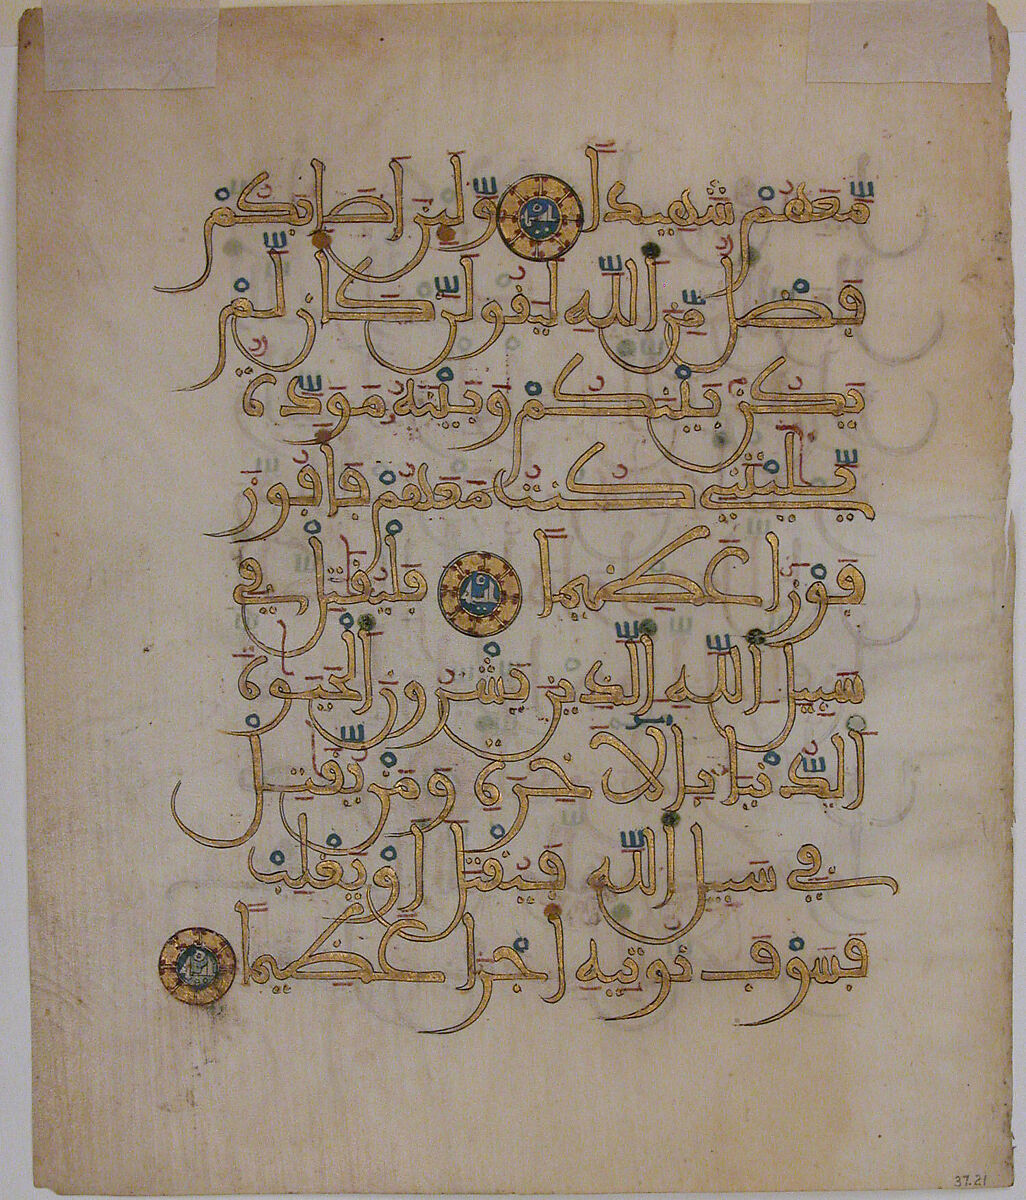 مَّعَهُمْ شَهِيدًا آية وَلَئِنَ اَصَٰبَكُمْ
فَضْلٌ مِّنَ اَللَّهِ لَيَقُولَنَّ كَأَن لَّمْ
يَكُنۢ بَيْنَكُمْ وَبَيْنَهُۥ مَوَدَّةٌ
يَٰلَيْتَنِي كُنتُ مَعَهُمْ فَأَفُوزَ
فَوْزًا عَظِيمًا آية فَلْيُقَٰتِلْ فِي
سَبِيلِ اِللَّهِ اِلَّذِينَ يَشْرُونَ اَلْحَيَوٰةَ
اَلدُّنْيَا بِالَاخِرَةِ وَمَنْ يُّقَٰتِلْ
فِي سَبِيلِ اِللَّهِ فَيُقْتَلَ اَوْ يَغْلِبْ
فَسَوْفَ نُوتِيهِ أَجْرًا عَظِيمًا آية
37.21